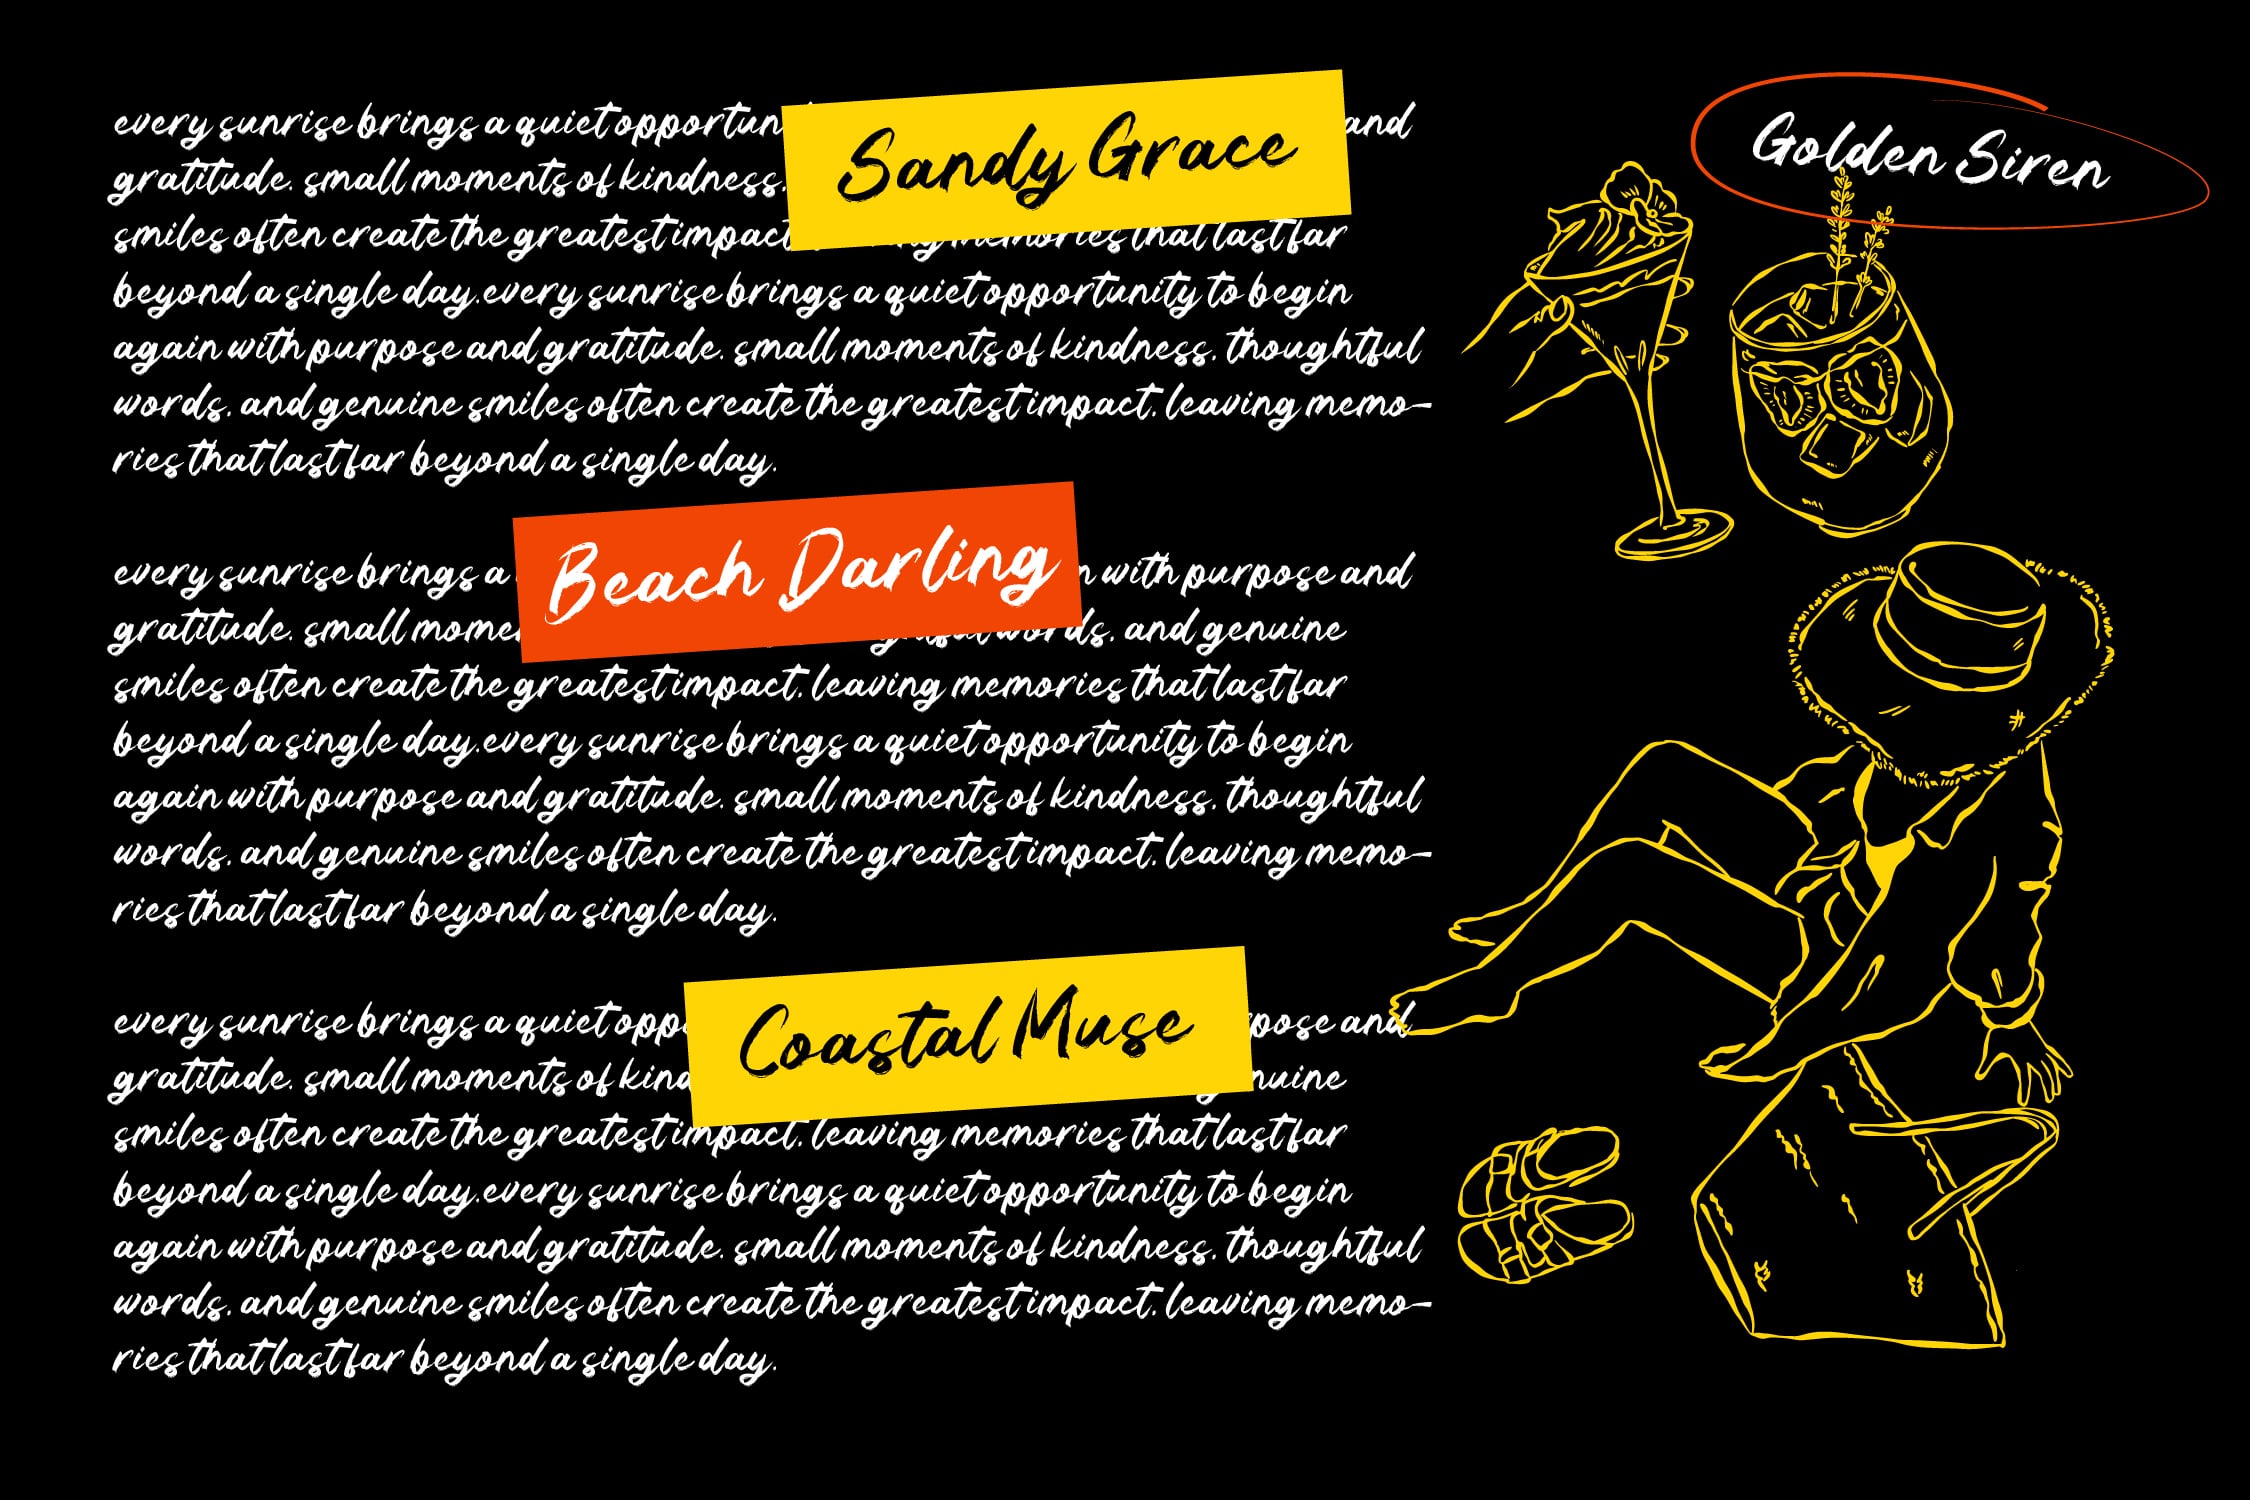 Sandy Grace
Golden Siren
every sunrise brings a quiet and
gratitude. small moments of kindness,
smiles often create the greatest impact memories that last far
beyond a single day.every sunrise brings a quiet opportunity to begin
again with purpose and gratitude. small moments of kindness, thoughtful
words, and genuine smiles often create the greatest impact, leaving memo-
ries that last far beyond a single day.
Beach Darling
every sunrise brings a with purpose and
gratitude. small words, and genuine
smiles often create the greatest impact, leaving memories that last far
beyond a single day.every sunrise brings a quiet opportunity to begin
again with purpose and gratitude. small moments of kindness, thoughtful
words, and genuine smiles often create the greatest impact, leaving memo-
ries that last far beyond a single day.
Coastal Muse
every sunrise brings a quiet and
gratitude. small moments of
smiles often create the greatest impact, leaving memories that last far
beyond a single day.every sunrise brings a quiet opportunity to begin
again with purpose and gratitude. small moments of kindness, thoughtful
words, and genuine smiles often create the greatest impact, leaving memo-
ries that last far beyond a single day.